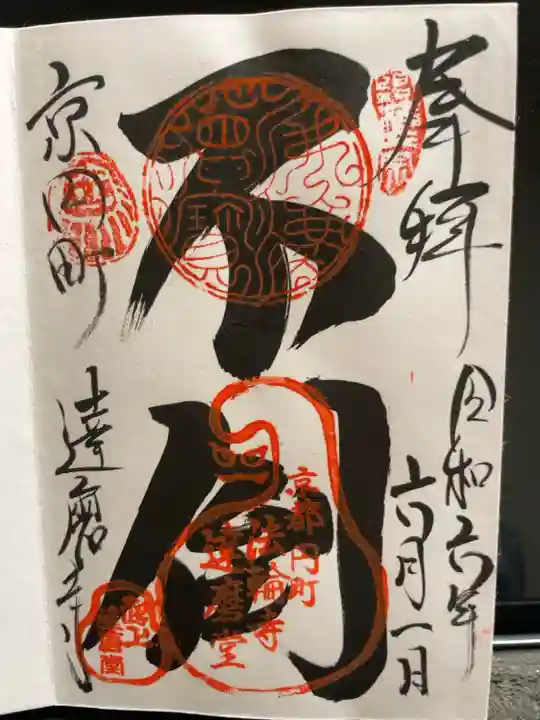 奉拝
令和六年
六月一日
不倒
京円町
達磨寺
京都円町
法輪寺
達磨堂